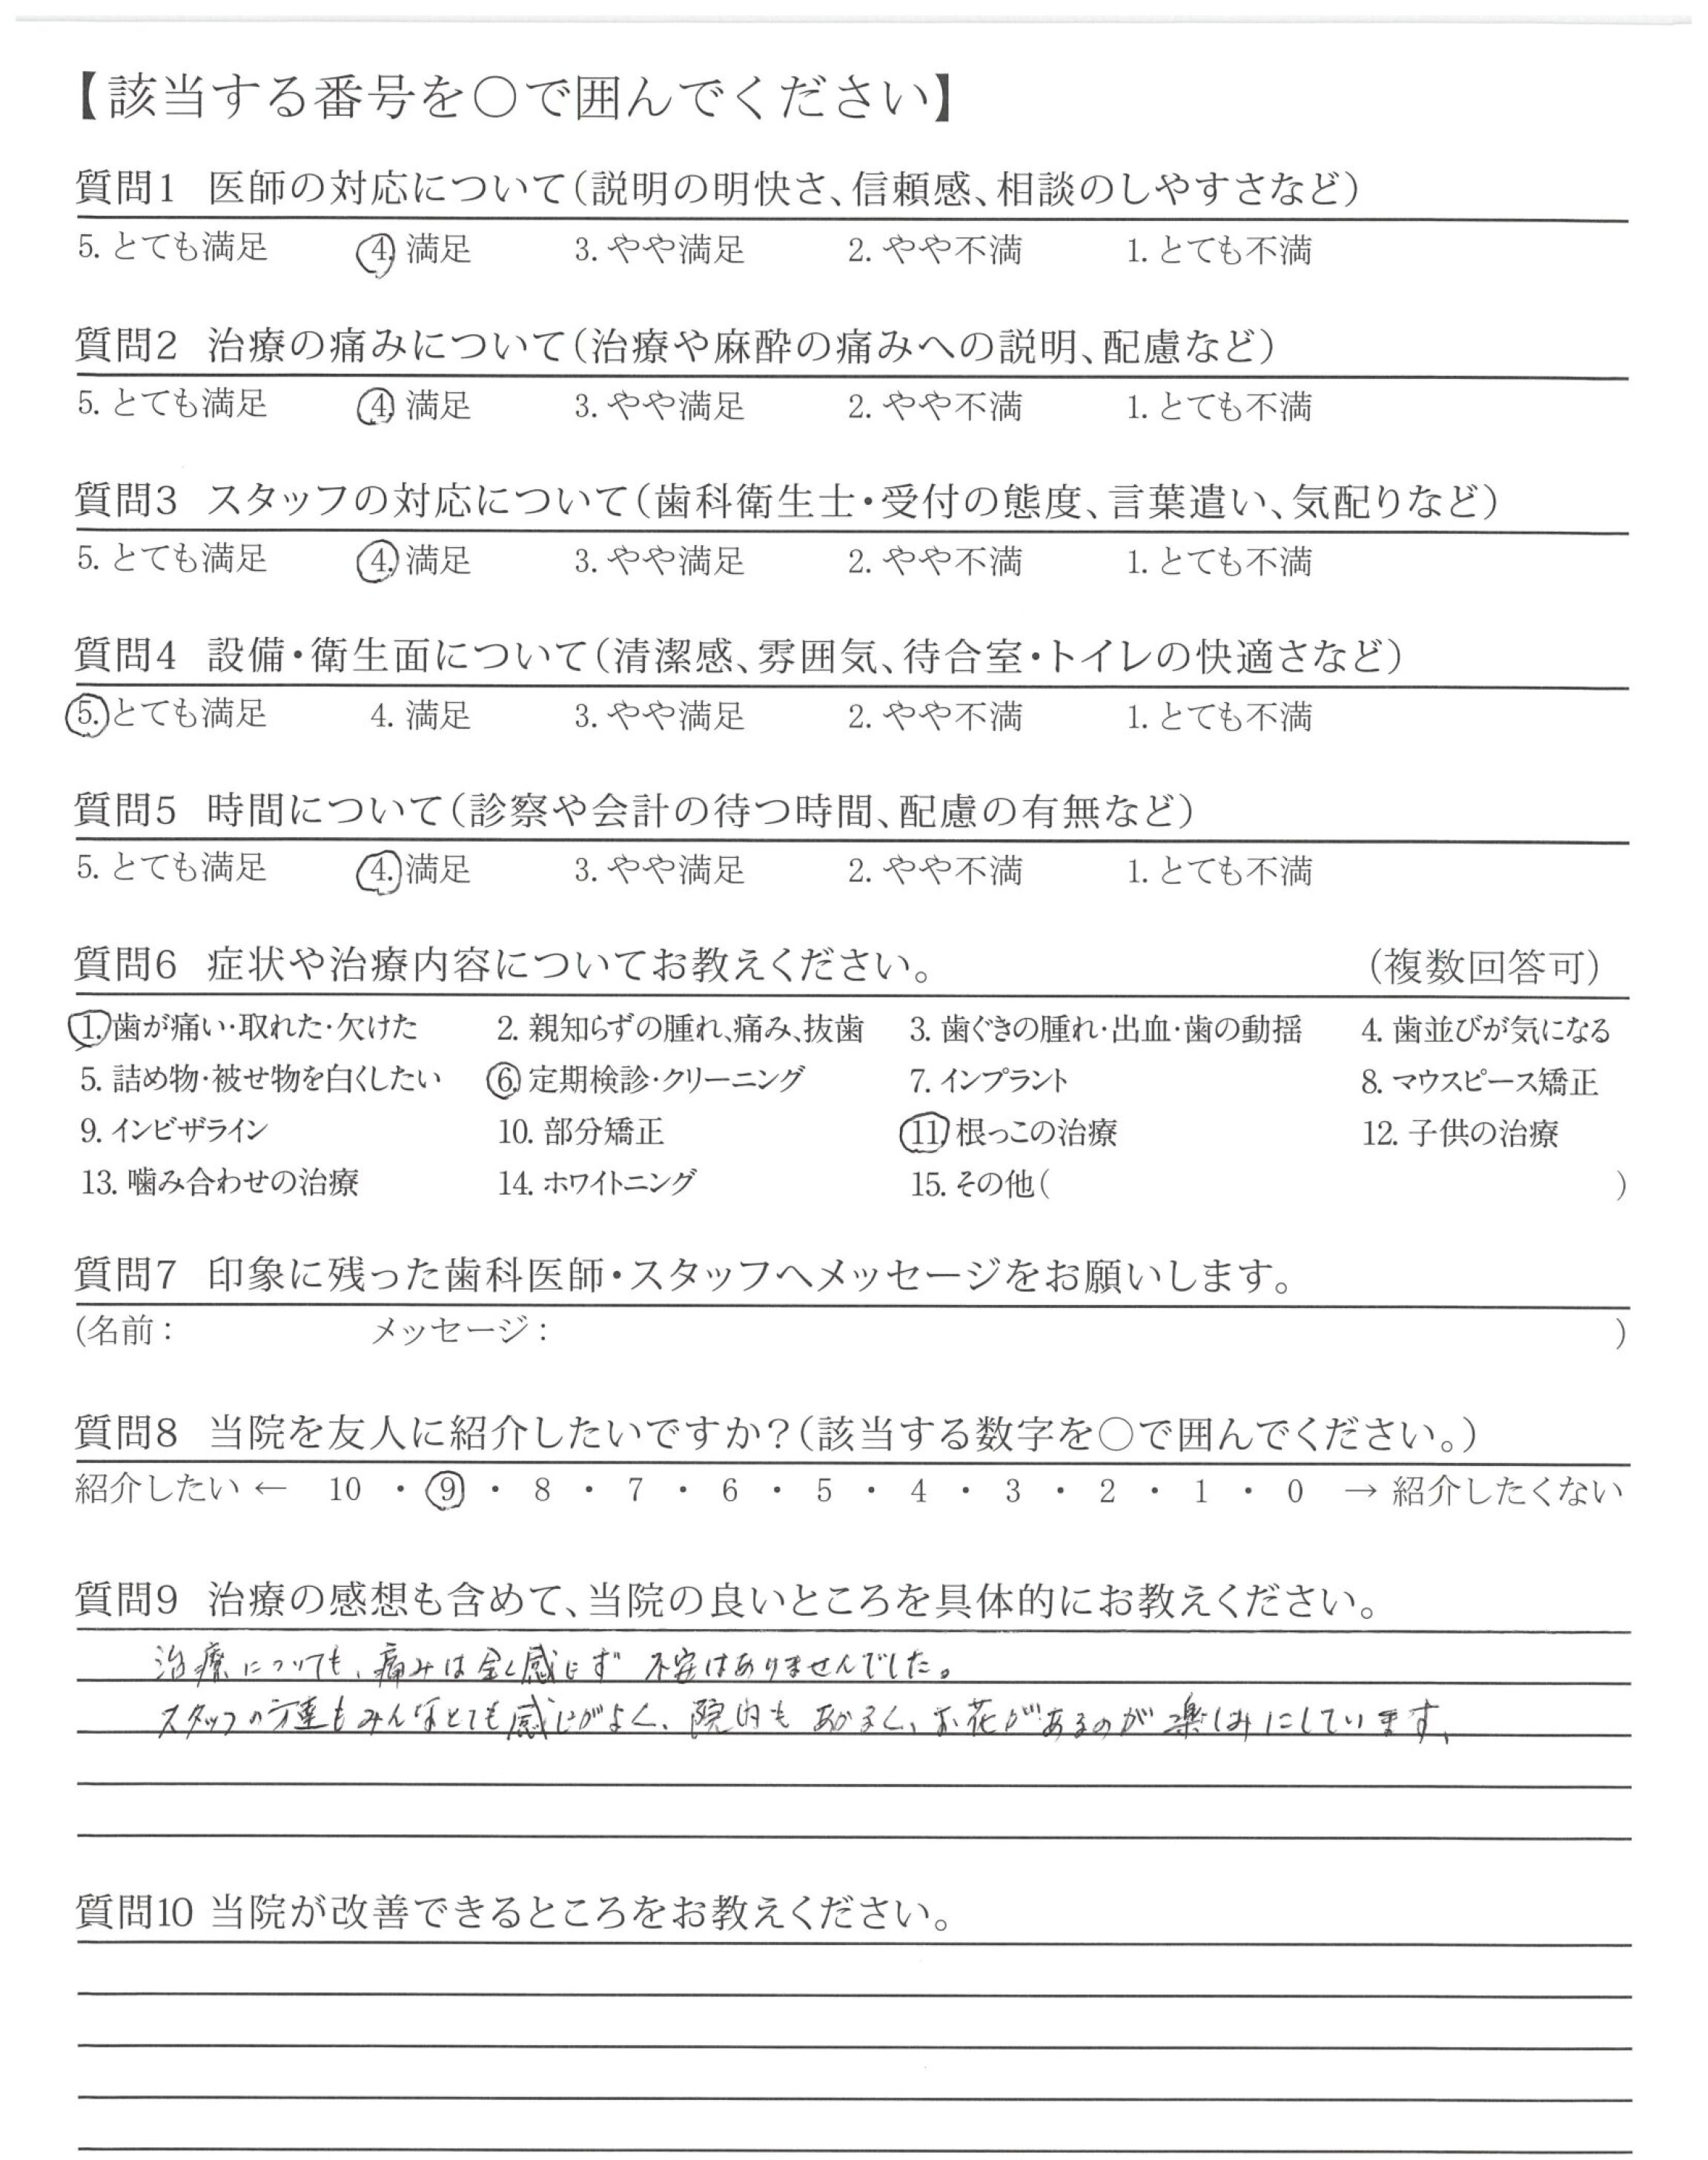 【該当する番号を○で囲んでください】
質問1 医師の対応について(説明の明快さ、信頼感、相談のしやすさなど)
5. とても満足 4. 満足 3. やや満足 2. やや不満 1. とても不満
質問2 治療の痛みについて(治療や麻酔の痛みへの説明、配慮など)
5. とても満足 4. 満足 3. やや満足 2. やや不満 1. とても不満
質問3 スタッフの対応について(歯科衛生士・受付の態度、言葉遣い、気配りなど)
5. とても満足 4. 満足 3. やや満足 2. やや不満 1. とても不満
質問4 設備・衛生面について(清潔感、雰囲気、待合室・トイレの快適さなど)
5. とても満足 4. 満足 3. やや満足 2. やや不満 1. とても不満
質問5 時間について(診察や会計の待つ時間、配慮の有無など)
5. とても満足 4. 満足 3. やや満足 2. やや不満 1. とても不満
質問6 症状や治療内容についてお教えください。 (複数回答可)
1. 歯が痛い・取れた・欠けた 2. 親知らずの腫れ、痛み、抜歯 3. 歯ぐきの腫れ・出血・歯の動揺 4. 歯並びが気になる
5. 詰め物・被せ物を白くしたい 6. 定期検診・クリーニング 7. インプラント 8. マウスピース矯正
9. インビザライン 10. 部分矯正 11. 根っこの治療 12. 子供の治療
13. 噛み合わせの治療 14. ホワイトニング 15. その他( )
質問7 印象に残った歯科医師・スタッフへメッセージをお願いします。
(名前: メッセージ: )
質問8 当院を友人に紹介したいですか?(該当する数字を○で囲んでください。)
紹介したい ← 10 ・ 9 ・ 8 ・ 7 ・ 6 ・ 5 ・ 4 ・ 3 ・ 2 ・ 1 ・ 0 → 紹介したくない
質問9 治療の感想も含めて、当院の良いところを具体的にお教えください。
治療についても、痛みは全く感じず 不安はありませんでした。
スタッフの方達もみんなとても感じがよく、院内も あかるく、お花があるのが楽しみにしています、
質問10 当院が改善できるところをお教えください。